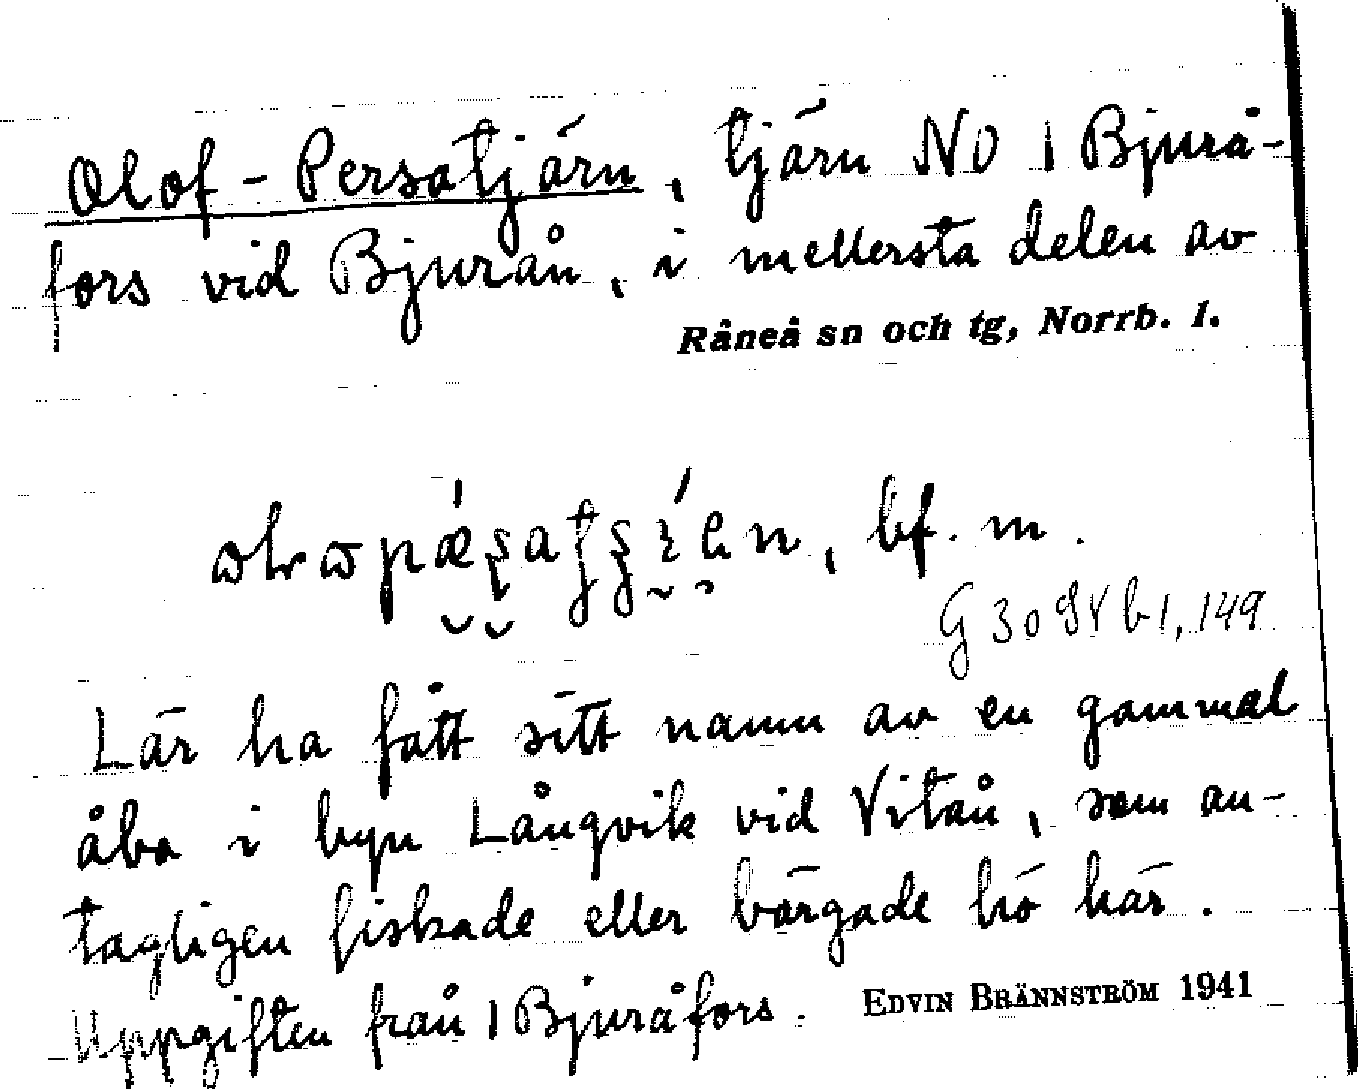 Olof-Persatjärn, tjärn NO 1 Bjurå-
fors vid Bjurån, i mellersta delen av
Råneå sn och tg, Norrb. l.
bf. m.
Lär ha fått sitt namn av en gammal
åbo i byn Långvik vid Vitån, som an-
tagligen fiskade eller bärgade hö här.
Uppgiften från 1 Bjuråfors. EDVIN BRÄNNSTRÖM 1941